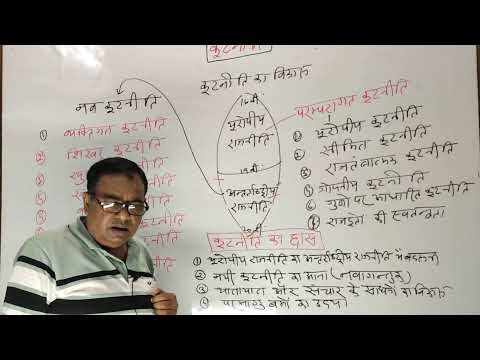 कूटनीति
कूटनीति का विकास
नव कूटनीति
① व्यक्तिगत कूटनीति
② शिखर कूटनीति
③
④
16वीं
यूरोपीय
राजनीति
19वीं
अन्तर्राष्ट्रीय
राजनीति
20वीं
परम्परागत कूटनीति
① यूरोपीय कूटनीति
② सीमित कूटनीति
③ राजतंत्रात्मक कूटनीति
④ गोपनीय कूटनीति
⑤ गुणों पर आधारित कूटनीति
⑥ राजदूतों की स्वतन्त्रता
कूटनीति का ह्रास
① यूरोपीय राजनीति का अन्तर्राष्ट्रीय राजनीति में बदलना
② नयी कूटनीति का आना (नवागन्तुक)
③ यातायात और संचार के साधनों का विकास
④ परमाणु बमों का उदय